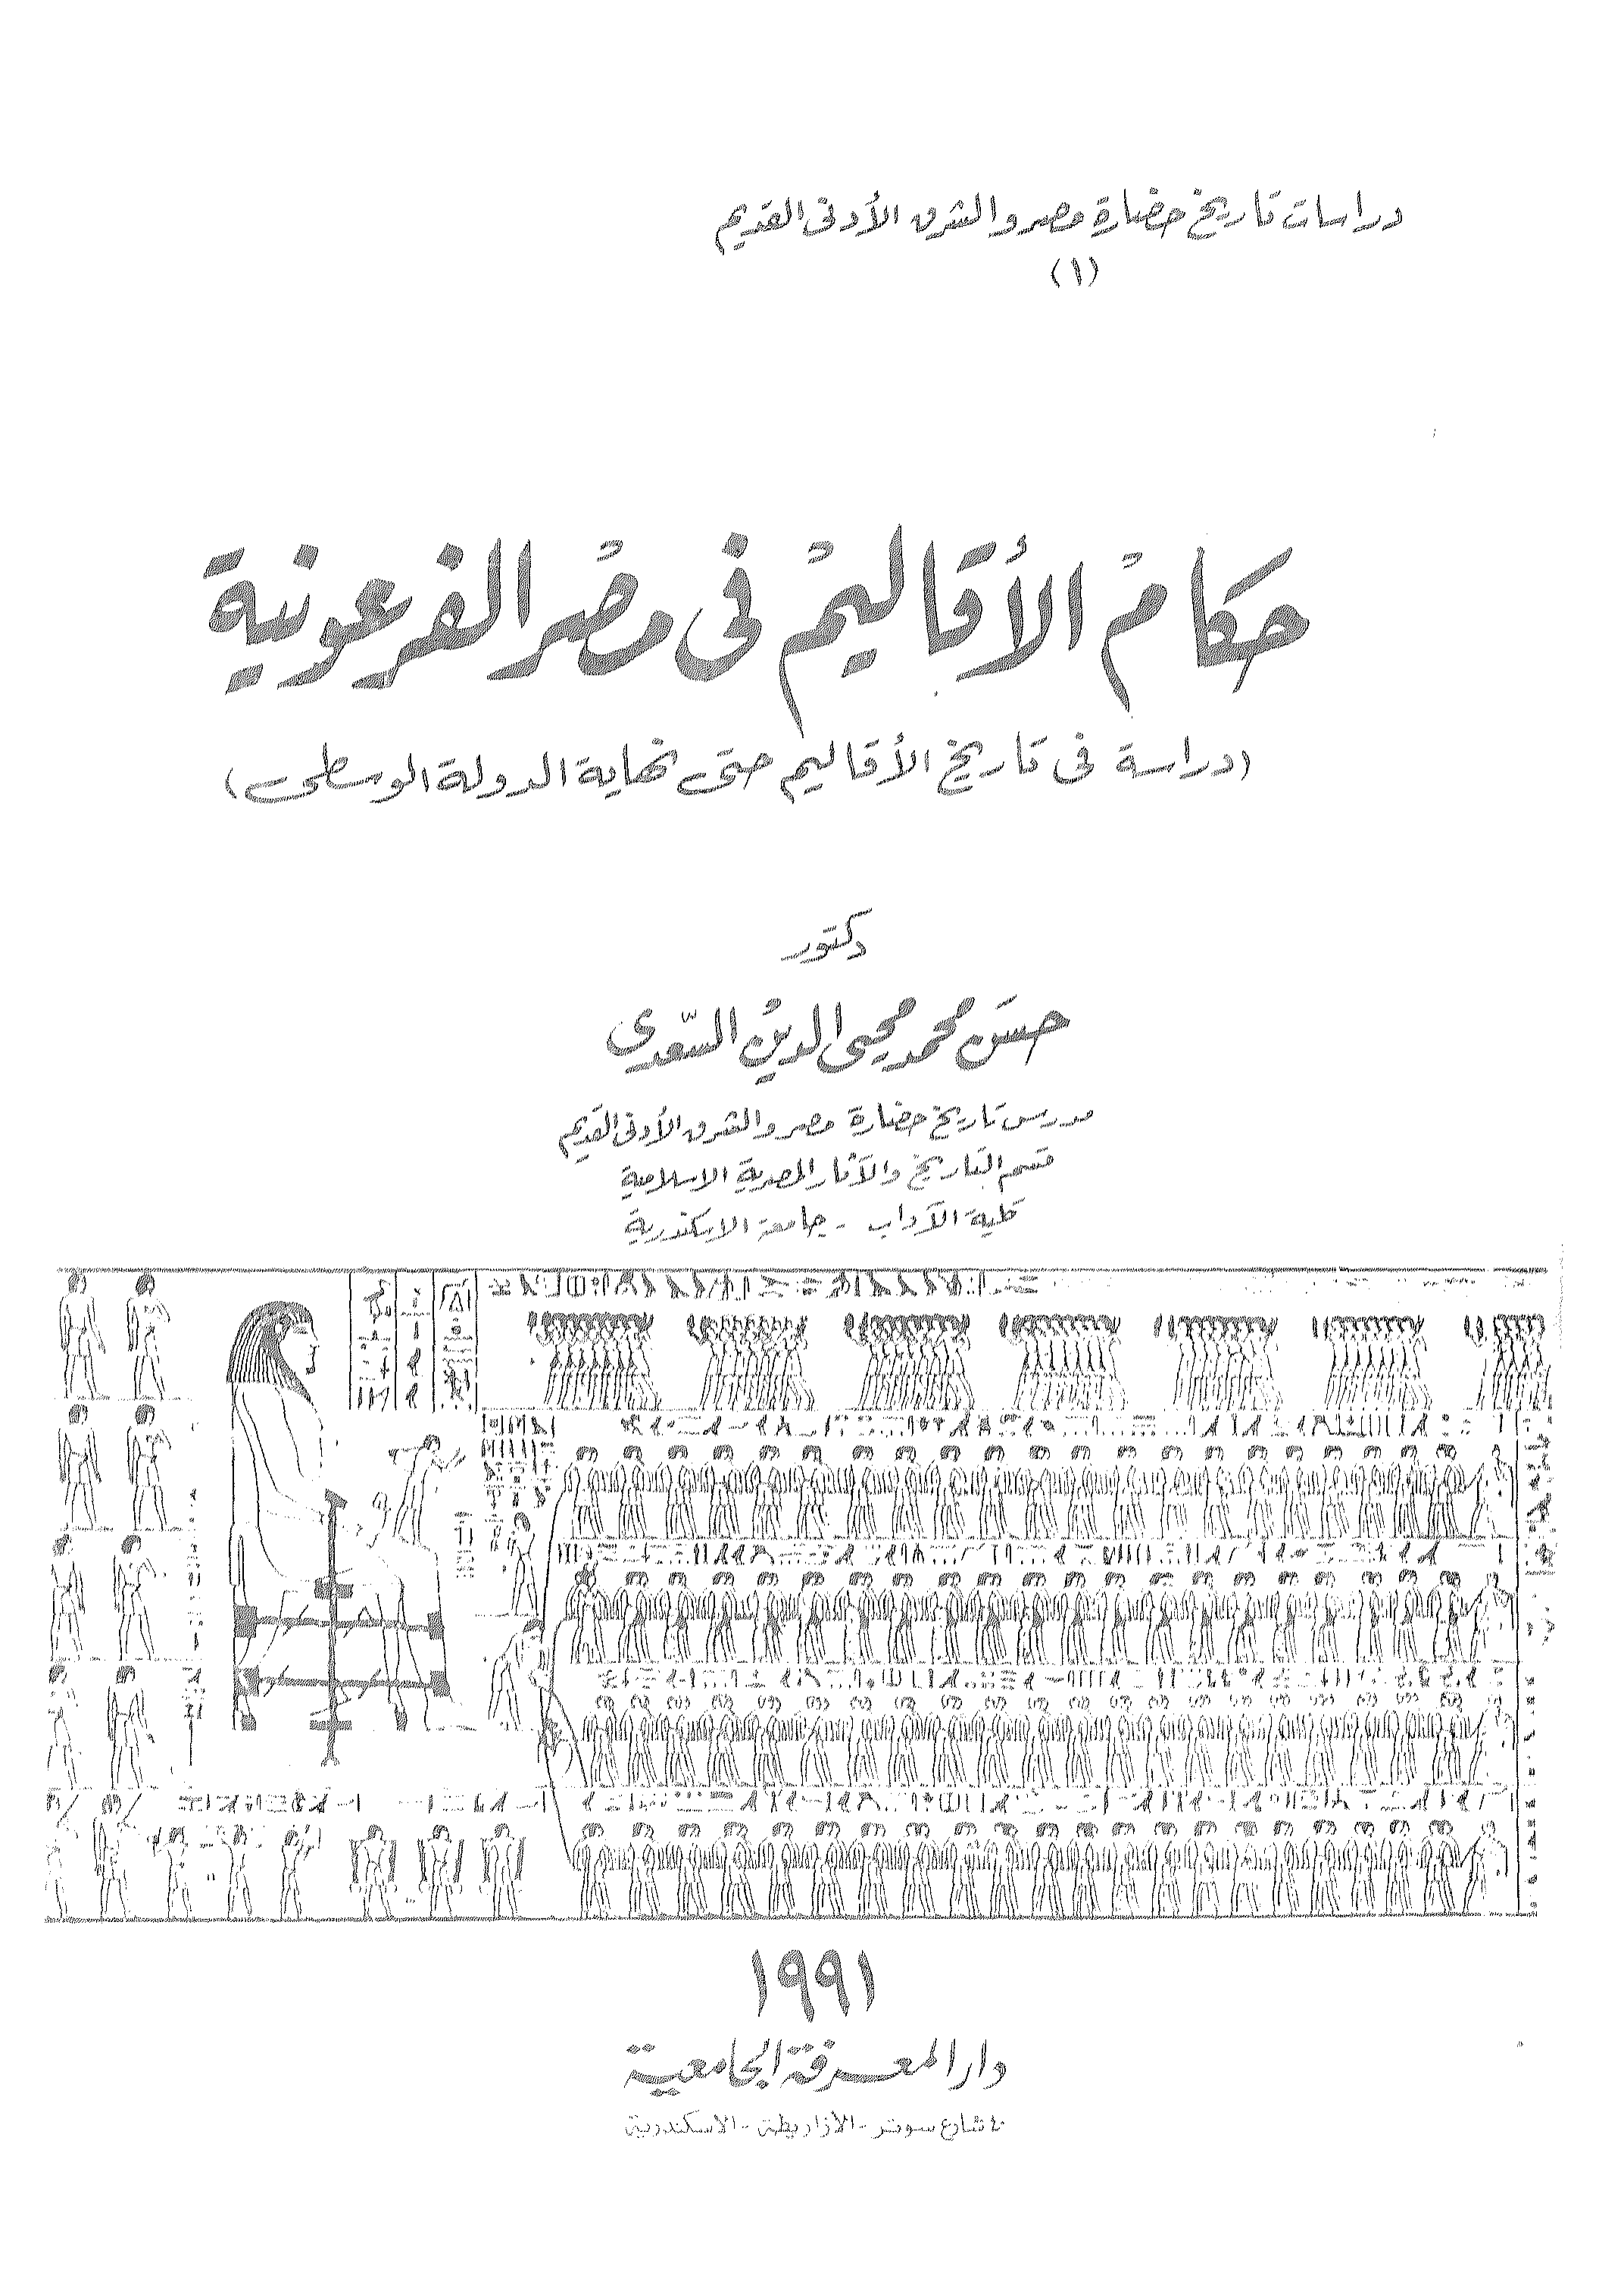 دراسات تاريخ حضارة مصر والشرق الأدنى القديم
(١)
حكام الأقاليم فى مصر الفرعونية
(دراسة فى تاريخ الأقاليم حتى نهاية الدولة الوسطى)
دكتور
حسن محمد محيى الدين السعدى
مدرس تاريخ حضارة مصر والشرق الأدنى القديم
قسم التاريخ والآثار المصرية الاسلامية
كلية الآداب - جامعة الاسكندرية
١٩٩١
دار المعرفة الجامعية
٤٠ شارع سوتر - الأزاريطة - الاسكندرية